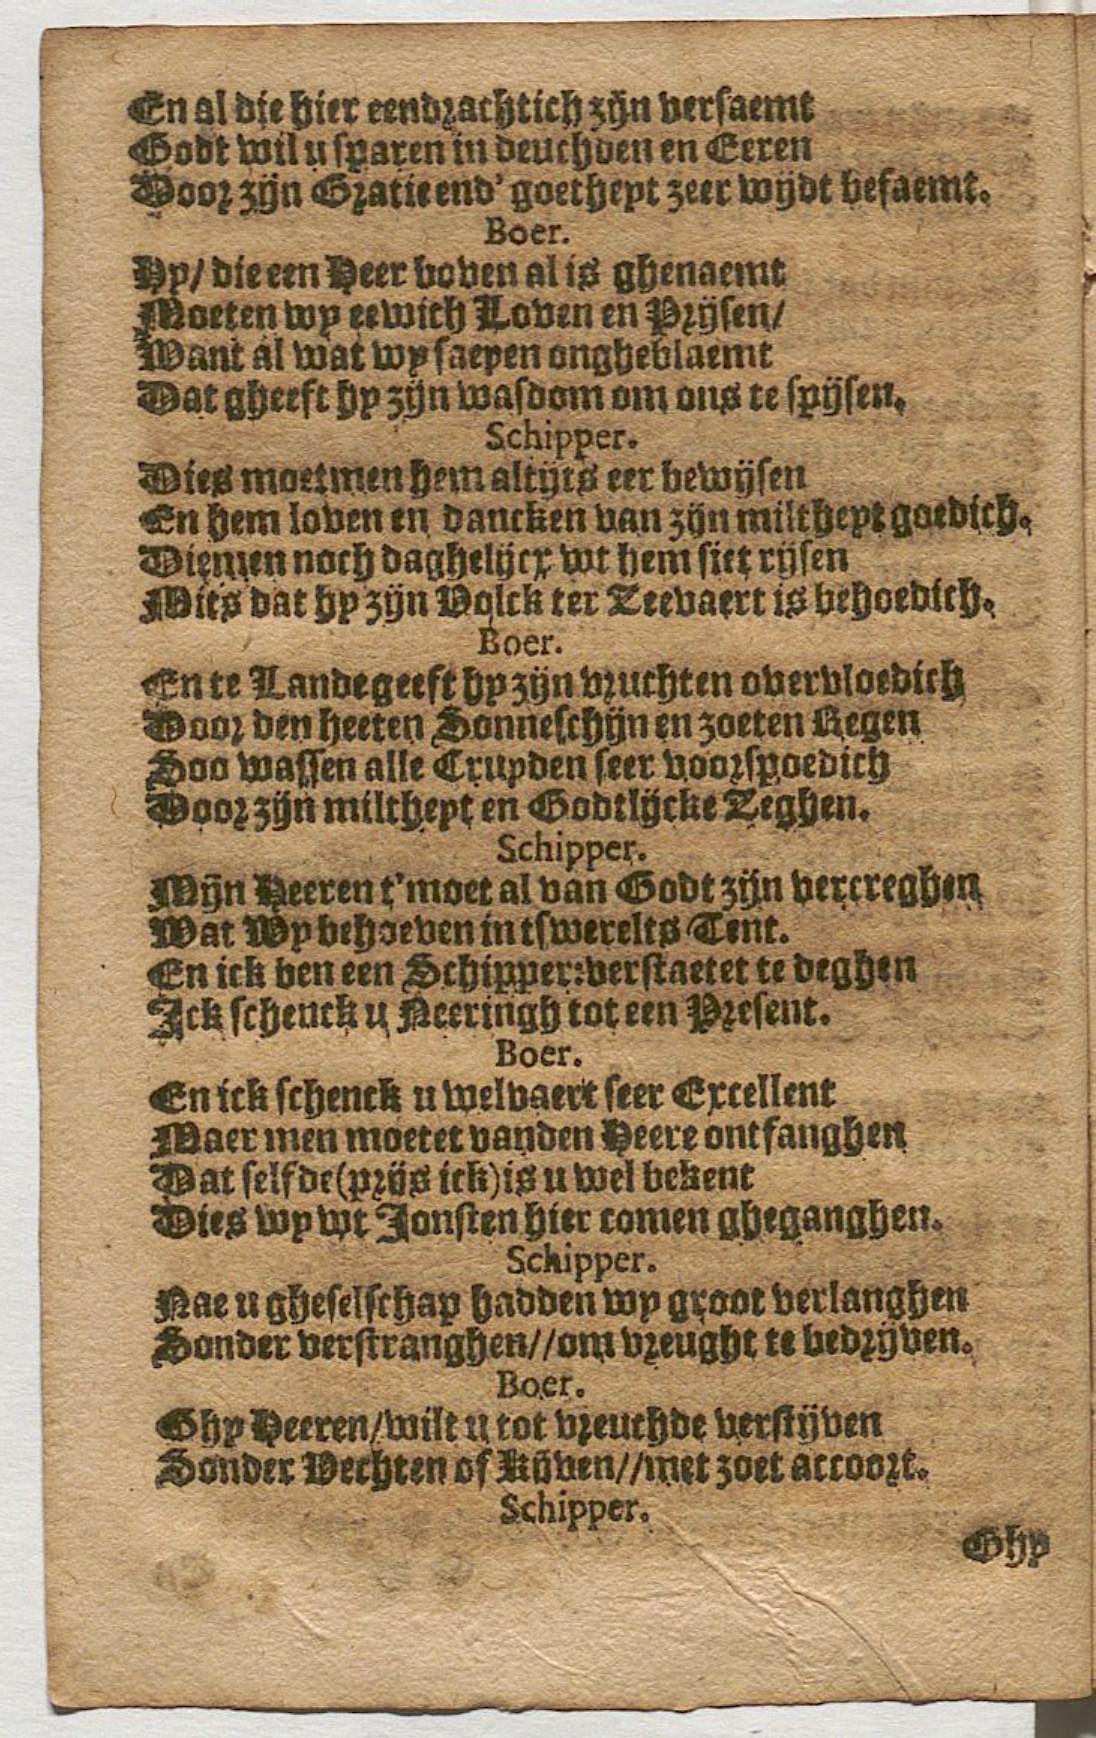 En al die hier eendrachtich zijn versaemt
Godt wil u sparen in deuchden en Eeren
Door zijn Gratie end' goetheyt zeer wijdt befaemt.
Boer.
Hy/ die een Heer boven al is ghenaemt
Moeten wy eewich Loven en Prijsen/
Want al wat wy saeyen ongheblaemt
Dat gheeft hy zijn wasdom om ons te spijsen.
Schipper.
Dies moetmen hem altijts eer bewijsen
En hem loven en dancken van zijn miltheyt goedich.
Diemen noch daghelijcx wt hem siet rijsen
Mits dat hy zijn Volck ter Zeevaert is behoedich.
Boer.
En te Lande geeft hy zijn vruchten overvloedich
Door den heeten Sonneschijn en zoeten Regen
Soo wassen alle Cruyden seer voorspoedich
Door zijn miltheyt en Godtlijcke Zeghen.
Schipper.
Mijn Heeren t'moet al van Godt zijn vercreghen
Wat Wy behoeven in tswerelts Tent.
En ick ben een Schipper: verstaetet te deghen
Ick schenck u Neeringh tot een Present.
Boer.
En ick schenck u welvaert seer Excellent
Maer men moetet vanden Heere ontfanghen
Dat selfde (prijs ick) is u wel bekent
Dies wy wt Jonsten hier comen gheganghen.
Schipper.
Nae u gheselschap hadden wy groot verlanghen
Sonder verstranghen//om vreught te bedrijven.
Boer.
Ghy Heeren/wilt u tot vreuchde verstijven
Sonder Vechten of Kijven//met zoet accoort.
Schipper.
Ghy